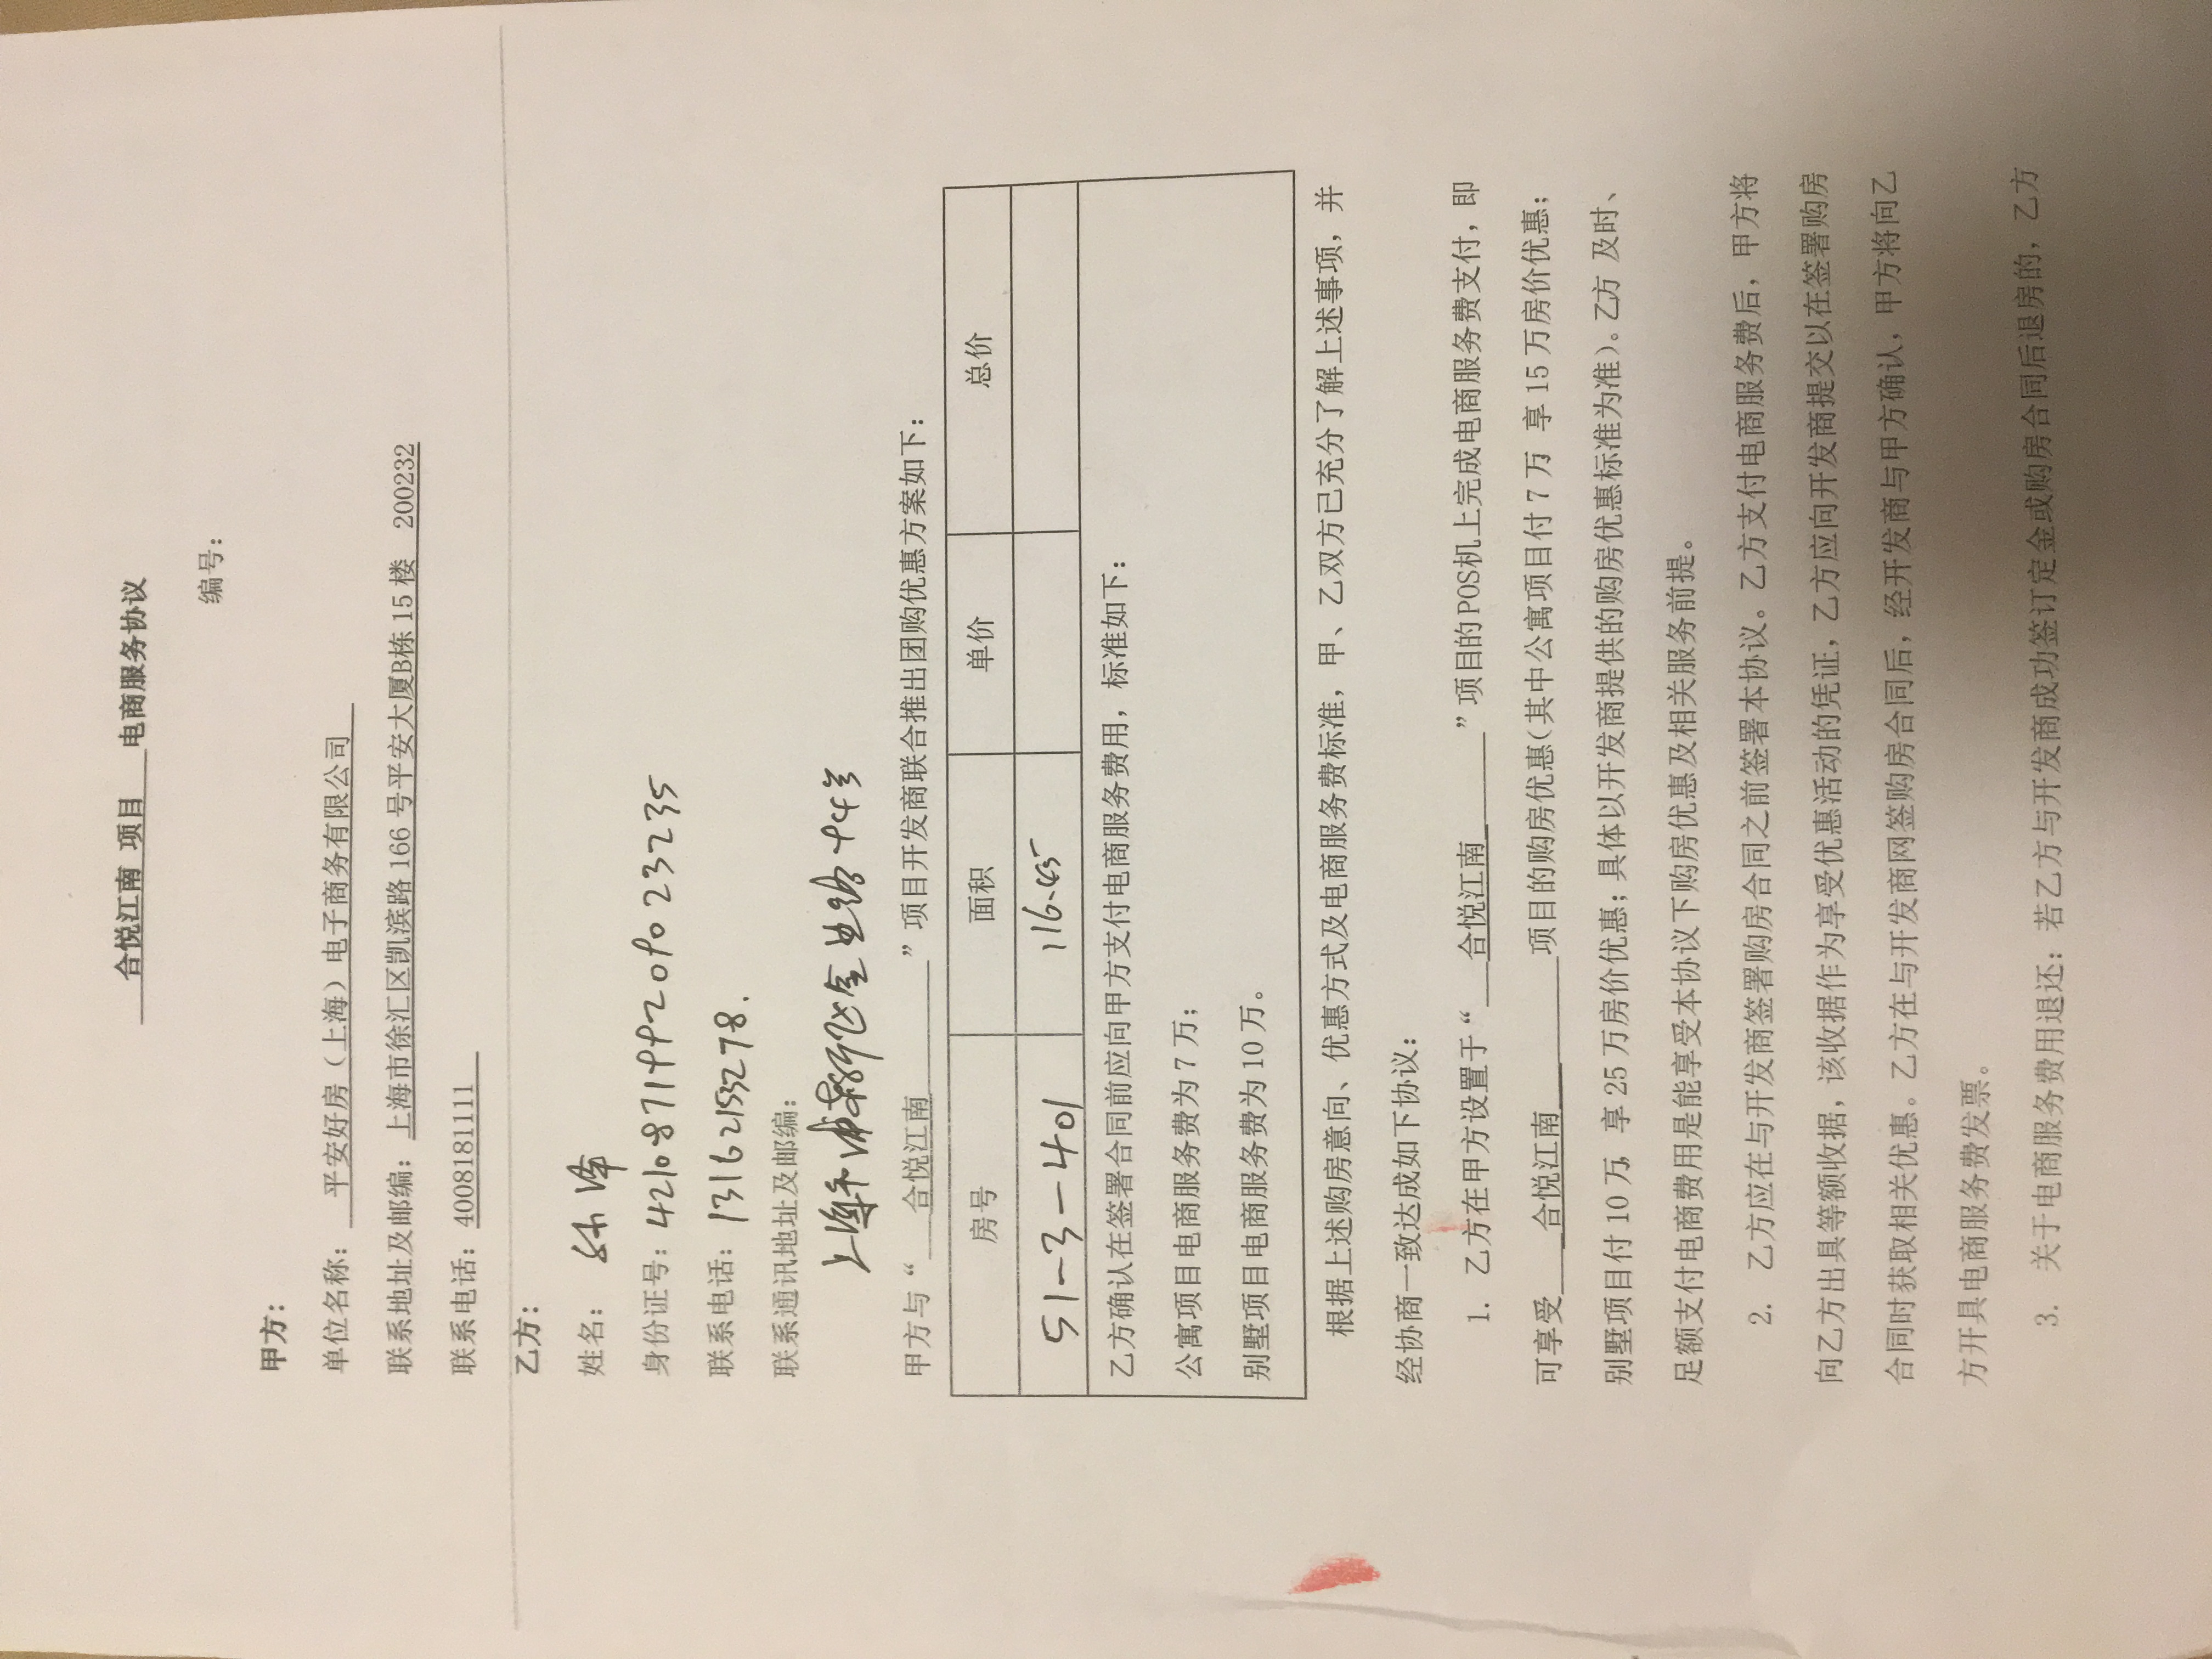 合悦江南 项目 电商服务协议
编号：
甲方：
单位名称： 平安好房（上海）电子商务有限公司
联系地址及邮编：上海市徐汇区凯滨路 166 号平安大厦B栋 15 楼 200232
联系电话：4008181111
乙方：
姓名： 孙泽
身份证号：421087199209023235
联系电话：13162153278.
联系通讯地址及邮编：
上海市浦东新区金业路
甲方与“ 合悦江南 ”项目开发商联合推出团购优惠方案如下：
房号 面积 单价 总价
51-3-401 116.45
乙方确认在签署合同前应向甲方支付电商服务费用，标准如下：
公寓项目电商服务费为 7 万；
别墅项目电商服务费为 10 万。
根据上述购房意向、优惠方式及电商服务费标准，甲、乙双方已充分了解上述事项，并
经协商一致达成如下协议：
1. 乙方在甲方设置于“ 合悦江南 ”项目的 POS机上完成电商服务费支付，即
可享受 合悦江南 项目的购房优惠（其中公寓项目付 7 万 享 15 万房价优惠；
别墅项目付 10 万，享 25 万房价优惠；具体以开发商提供的购房优惠标准为准）。乙方 及时、
足额支付电商费用是能享受本协议下购房优惠及相关服务前提。
2. 乙方应在与开发商签署购房合同之前签署本协议。乙方支付电商服务费后，甲方将
向乙方出具等额收据，该收据作为享受优惠活动的凭证，乙方应向开发商提交以在签署购房
合同时获取相关优惠。乙方在与开发商网签购房合同后，经开发商与甲方确认，甲方将向乙
方开具电商服务费发票。
3. 关于电商服务费用退还：若乙方与开发商成功签订定金或购房合同后退房的，乙方